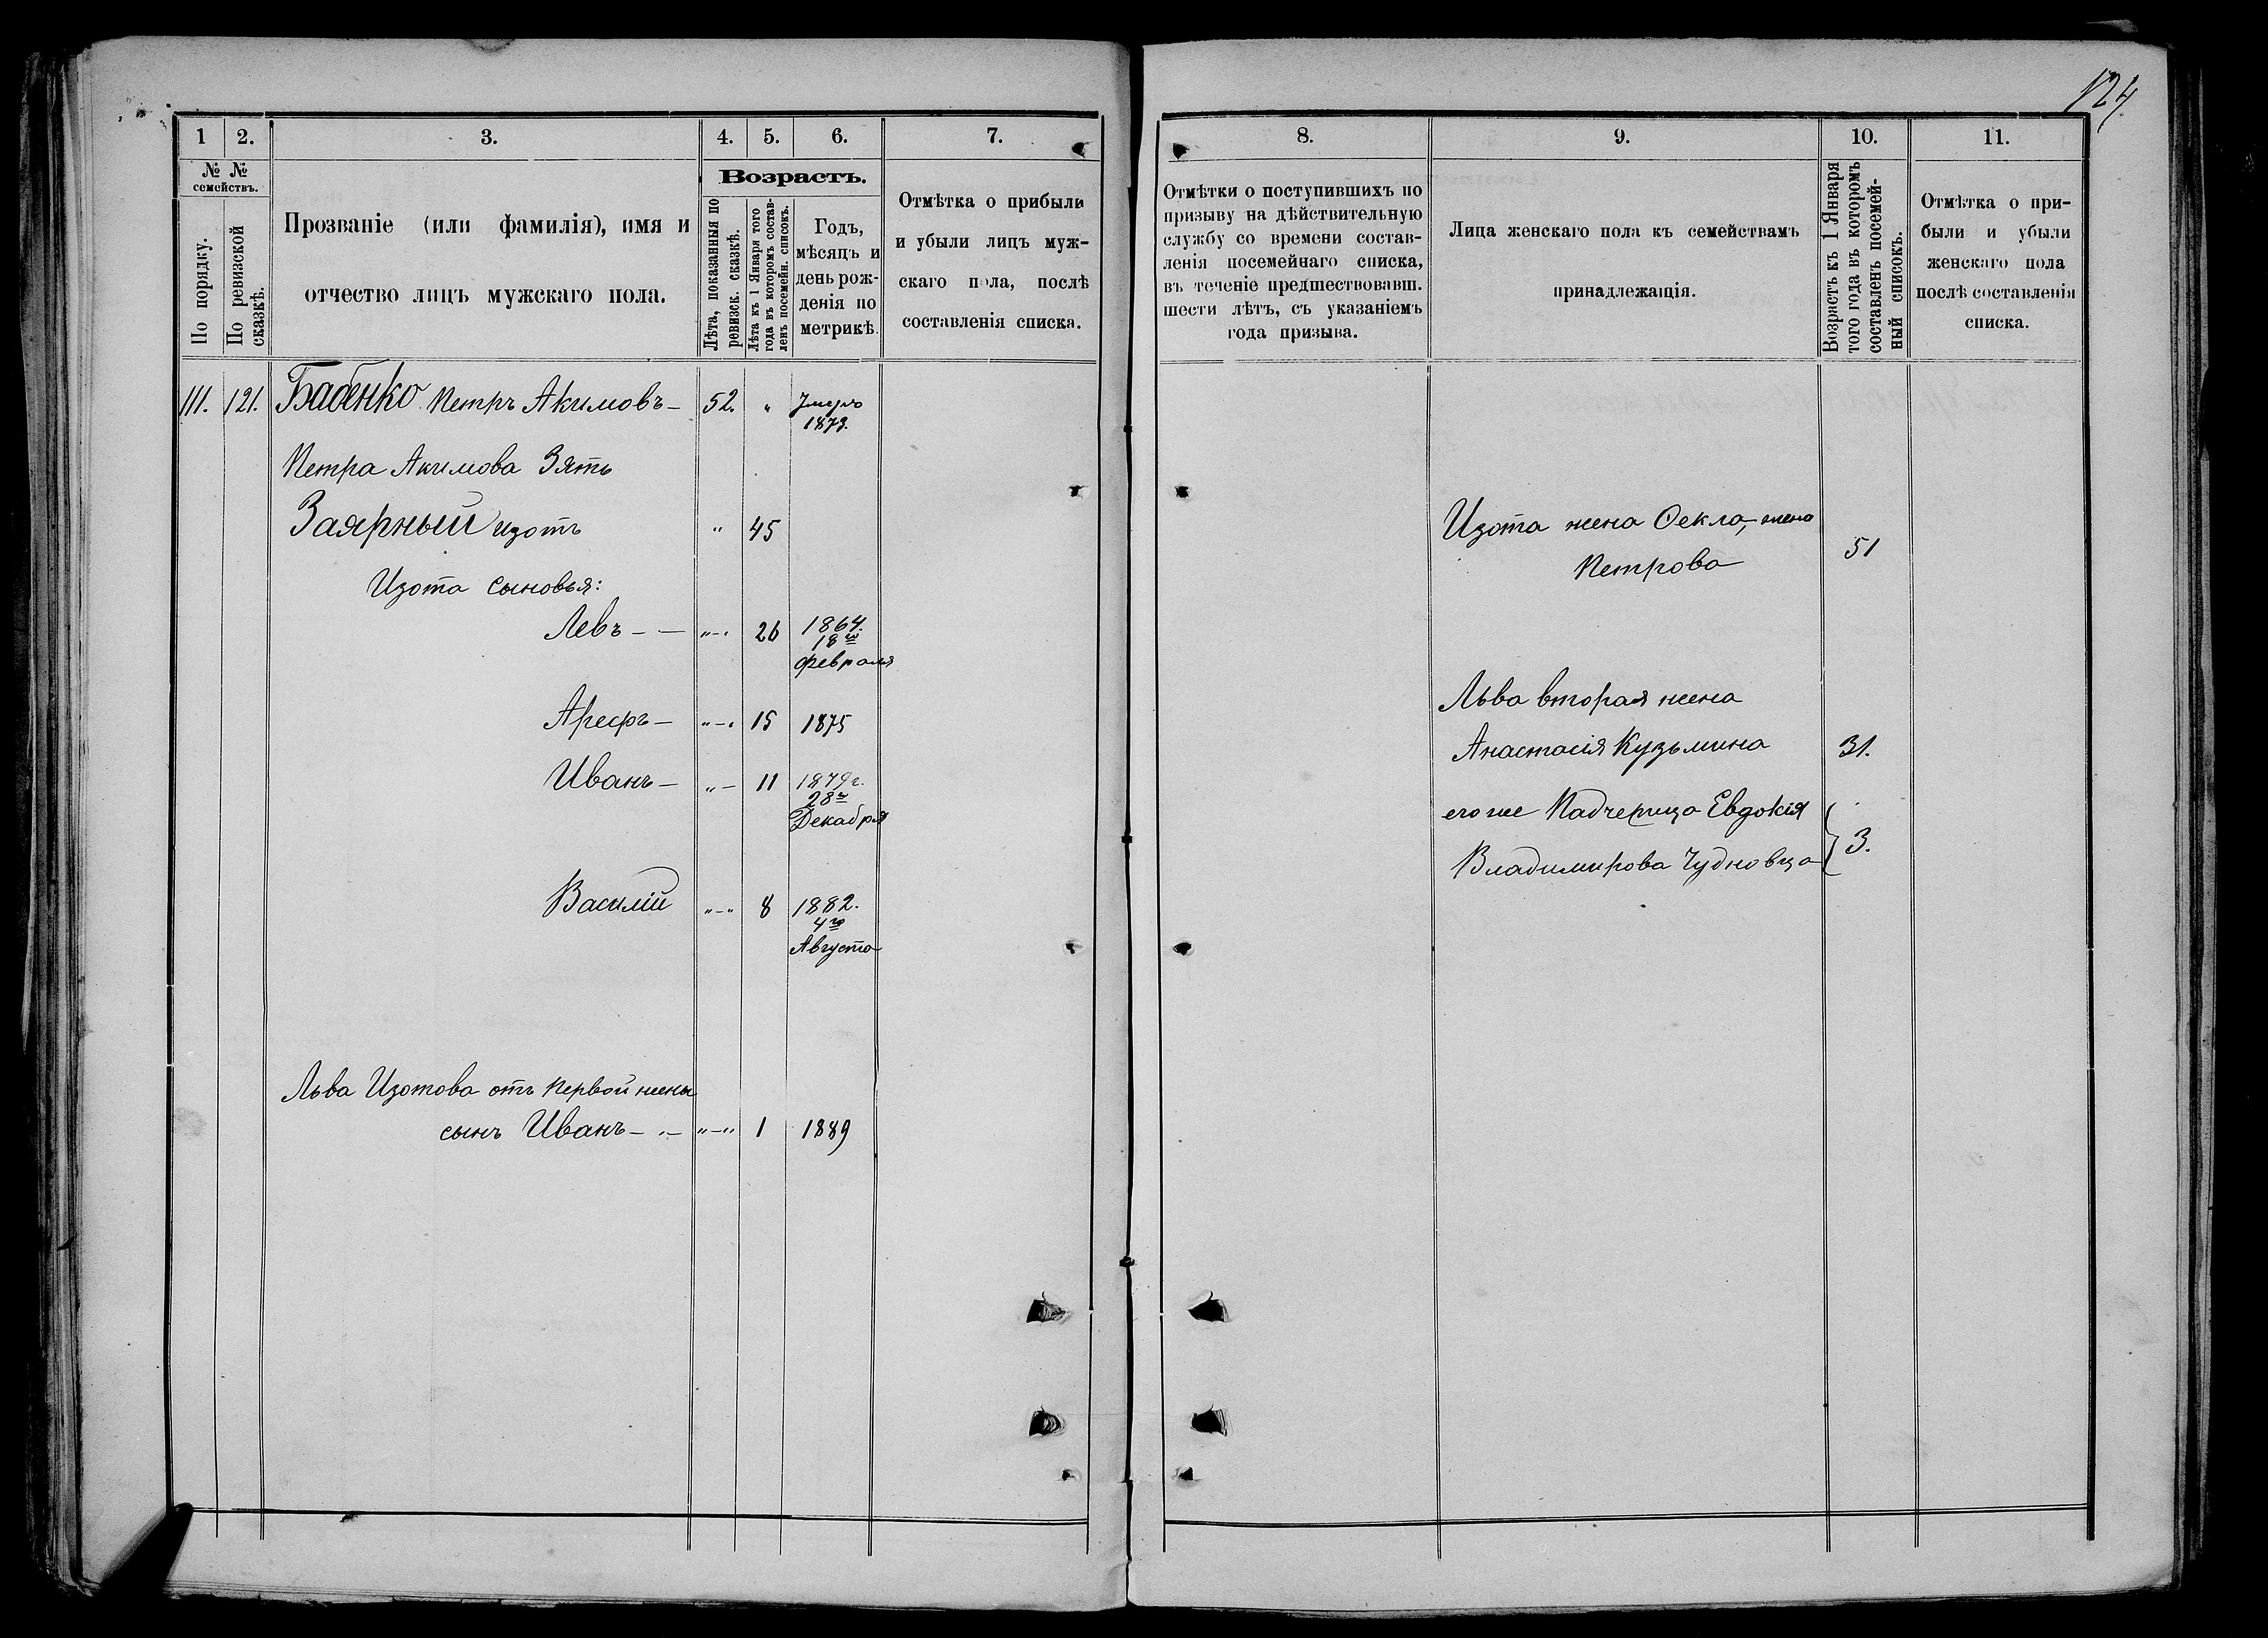 124
1
2.
3.
4.
5.
6.
7.
8.
9.
10.
11.
№ №
семействъ.
По порядку.
По ревизской
сказкѣ.
Прозваніе (или фамилія), имя и
отчество лицъ мужскаго пола.
Возрастъ.
Лѣта, показанныя по
ревизск. сказкѣ.
Лѣта къ 1 Января того
года въ которомъ состав-
ленъ посемейн. списокъ.
Годъ,
мѣсяцъ и
день рож-
денія по
метрикѣ.
Отмѣтка о прибыли
и убыли лицъ муж-
скаго пола, послѣ
составленія списка.
Отмѣтки о поступившихъ по
призыву на дѣйствительную
службу со времени состав-
ленія посемейнаго списка,
въ теченіе предшествовавш.
шести лѣтъ, съ указаніемъ
года призыва.
Лица женскаго пола къ семействамъ
принадлежащія.
Возрастъ къ 1 Января
того года въ которомъ
составленъ посемей-
ный списокъ.
Отмѣтка о при-
были и убыли
женскаго пола
послѣ составленія
списка.
111. 121. Бабенко Петръ Акимовъ — 52. " Умеръ
1873.
Петра Акимова Зять
Заярный Изотъ " 45
Изота сыновья:
Левъ — — "—" 26 1864.
18го
февраля
Арефъ — "—" 15 1875
Иванъ — "— 11 1879г.
28го
Декабря
Василій "—" 8 1882.
4го
Августа
Льва Изотова отъ первой жены
сынъ Иванъ — "— "—" 1 1889
Изота жена Ѳекла,
Петрова 51
Льва вторая жена
Анастасія Кузьмина 31.
его же Падчерица Евдокія
Владимирова Чудновца 3.